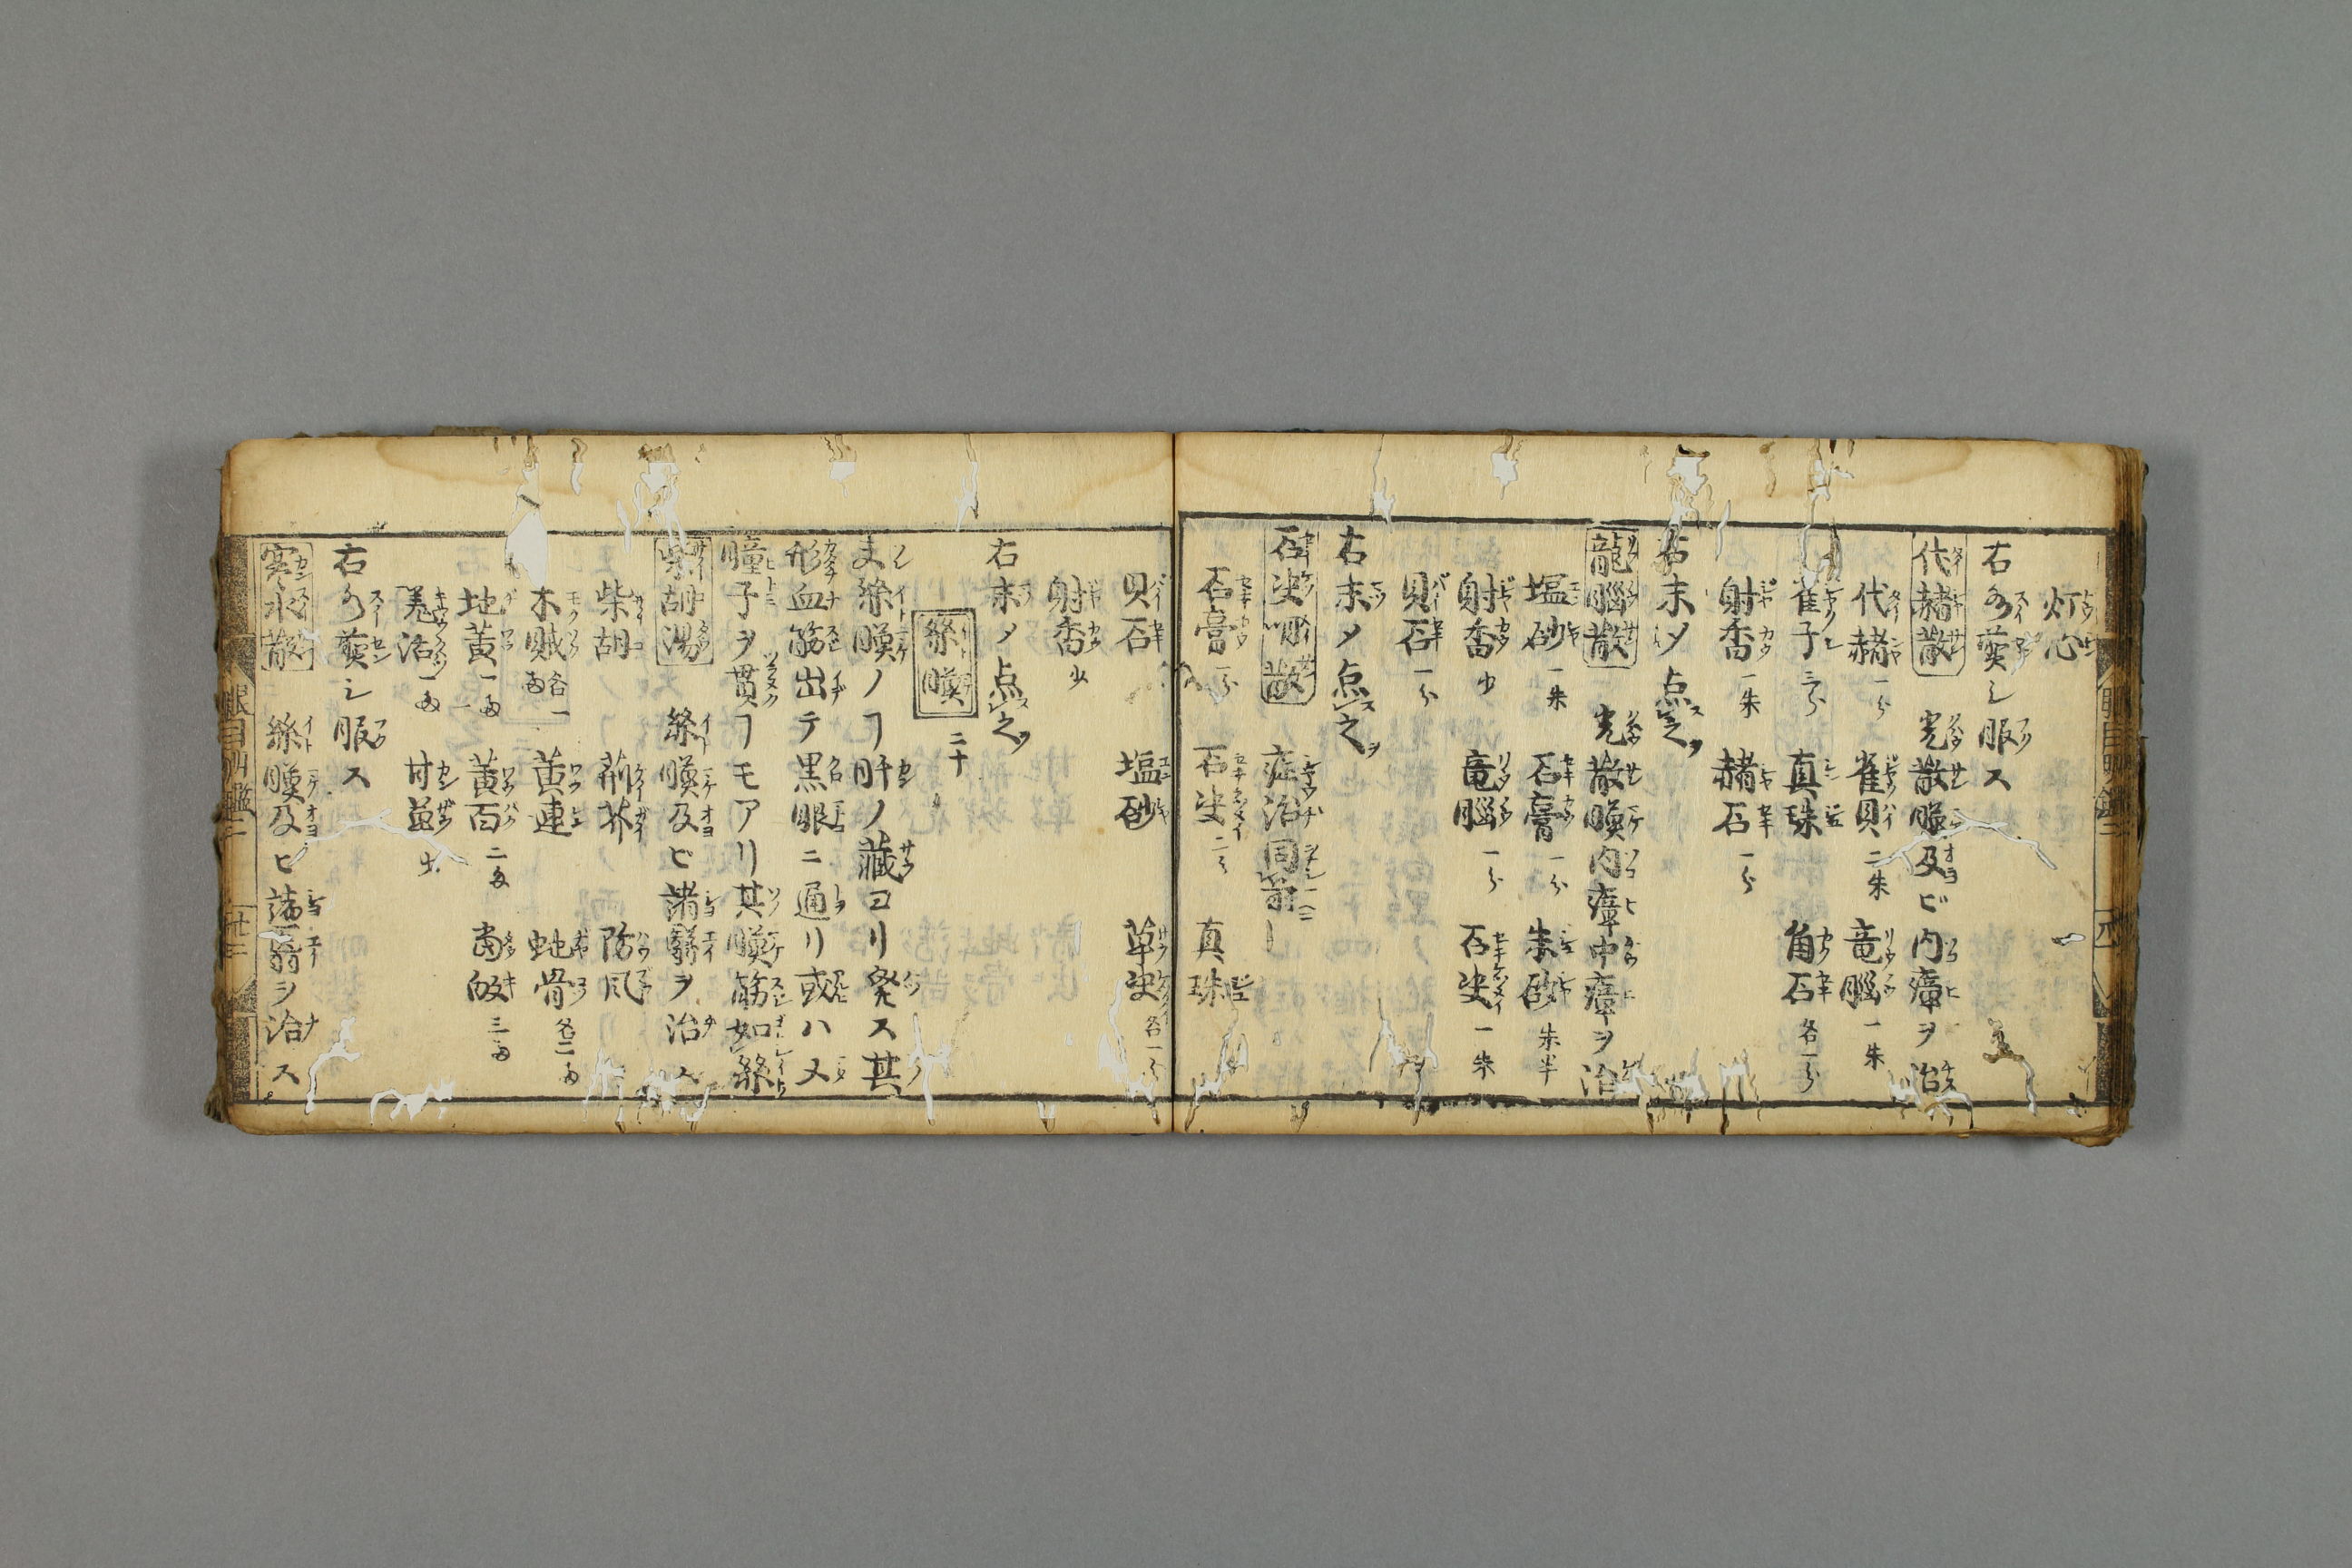 灯心
右水煎シ服ス
代赭散 光散瞙及ビ内瘴ヲ治ス
代赭一分 雀貝二朱 竜脳一朱
雀子三分 真珠 角石各一分
射香一朱 赭石一分
右末〆点ス之ヲ
龍脳散 光散瞙内瘴中瘴ヲ治
塩砂一朱 石膏一分 朱砂朱半
射香少 竜脳一分 石决一朱
貝石一分
右末〆点ス之ヲ
石决明散 症治同前
石膏一分 石决二分 真珠
貝石 塩砂 草决各一分
射香少
右末〆点ス之ヲ
絲瞙 二十
夫絲瞙ノヿ肝ノ藏ヨリ発ス其
形血筋出テ黒眼ニ通リ或ハ又
瞳子ヲ貫ヿモアリ其瞙筋如絲
柴胡湯 絲瞙及ビ諸翳ヲ治ス
柴胡 荊芥 防風
木賊各一両 黄連 虵骨各二両
地黄一両 黄百二両 歯皈三両
羗活一両 甘草少
右水煎シ服ス
寒水散 絲瞙及ビ諸翳ヲ治ス
眼目明鑑二 廿三